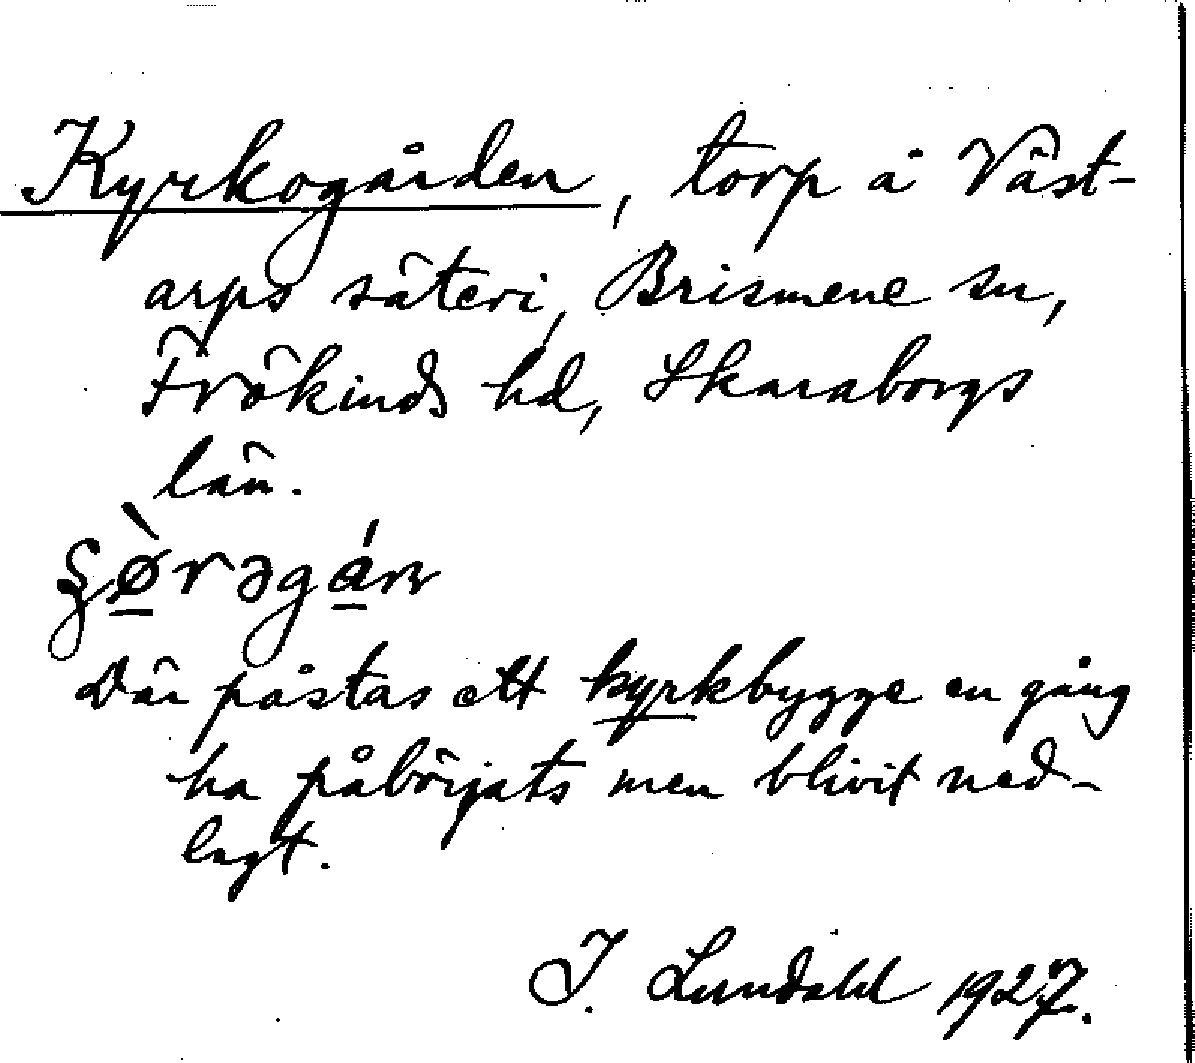 Kyrkogården, torp å Väst-
arps säteri, Brismene sn,
Frökinds hd, Skaraborgs
län.
Där påstas ett kyrkbygge en gång
ha påbörjats men blivit ned-
lagt.
I. Lundahl 1927.